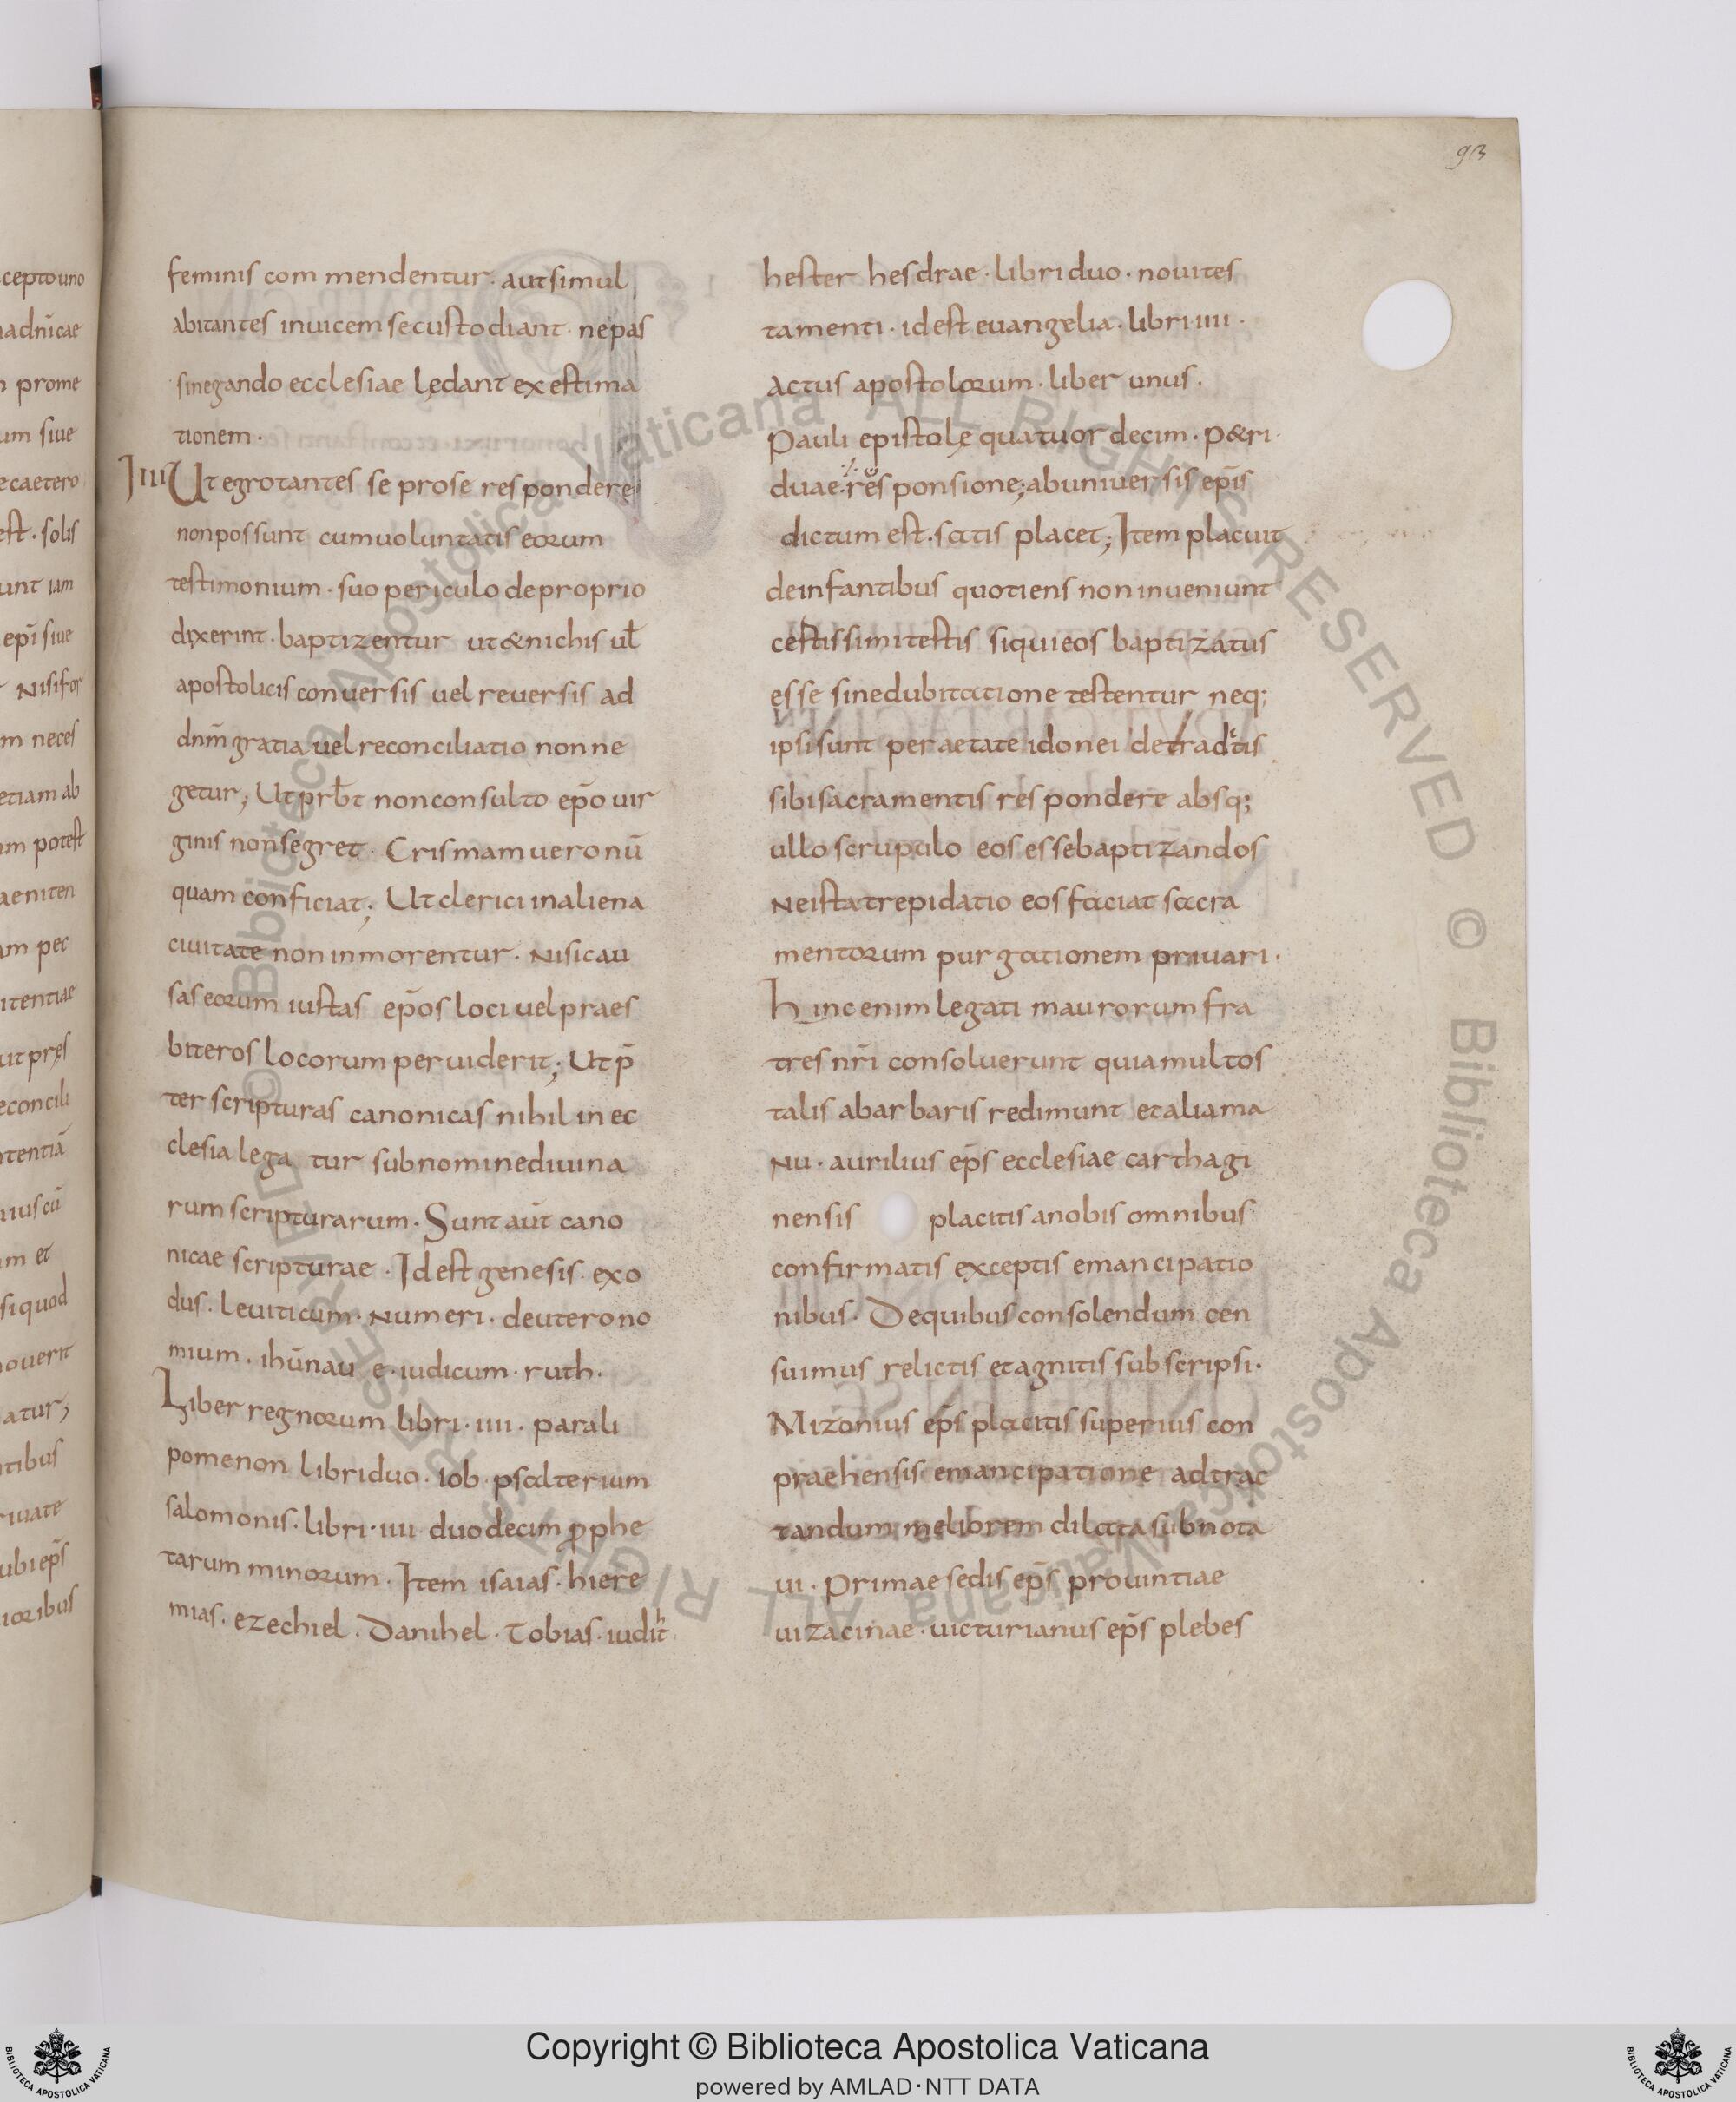 93
cepto uno
adnīcae
prome
um siue
ecaetero
est . solis
unt iam
epī siue
Nisi for
m neces
etiam ab
um potest
aeniten
am pec
itentiae
ut pres
econcili
tentiā
ius cū
m et
si quod
ouerit
atur;
tibus
riuate
ubi ep̄s
ioribus
feminis commendentur . aut simul
abitantes inuicem se custodiant . ne pas
sinegando ecclesiae lędant exestima
tionem .
IIII Ut egrotantes se pro se respondere
non possunt cum uoluntatis eorum
testimonium . suo periculo de proprio
dixerint . baptizentur ut & nichis ul̄
apostolicis conuersis uel reuersis ad
dnm̄ gratia uel reconciliatio non ne
getur ; Ut prb̄t non consulto ep̄o uir
ginis non segret . Crismam uero nū
quam conficiat ; Ut clerici in aliena
ciuitate non inmorentur . Nisi cau
sas eorum iustas ep̄os loci uel praes
biteros locorum peruiderit ; Ut p̄
ter scripturas canonicas nihil in ec
clesia lega tur sub nomine diuina
rum scripturarum . Sunt aūt cano
nicae scripturae . Id est genesis . exo
dus . leuiticum . Numeri . deuterono
mium . ihūnau e . iudicum . ruth .
Liber regnorum libri . IIII . parali
pomenon libri duo . iob . psalterium
salomonis . libri . IIII duodecim ꝓphe
tarum minorum . Item isaias . hiere
mias . ezechiel . Danihel . Tobias . iudit
hester hesdrae . libri duo . noui tes
tamenti . id est euangelia . libri IIII .
Actus apostolorum . liber unus .
Pauli epistolę quatuordecim . P&ri
duae . responsione; ab uniuersis ep̄is
dictum est . satis placet ; Item placuit
de infantibus quotiens non inueniunt
cestissimi testis siqui eos baptizatus
esse sine dubitatione testentur neq;
ipsi sunt per aetate idonei de traditis
sibi sacramentis respondere absq;
ullo scrupulo eos esse baptizandos
Ne ista trepidatio eos faciat sacra
mentorum purgationem priuari .
Hinc enim legati maurorum fra
tres nr̄i consoluerunt quia multos
talis abarbaris redimunt et aliama
Nu . aurilius ep̄s ecclesiae carthagi
nensis placitis a nobis omnibus
confirmatis exceptis emancipatio
nibus . De quibus consolendum cen
suimus relictis et agnitis subscripsi .
Mizonius ep̄s placitis superius con
praehensis emancipatione ad trac
tandum meliorem dilata subnota
ui . Primae sedis ep̄s prouintiae
uizacinae . uicturianus ep̄s plebes
© Biblioteca Apostolica Vaticana ALL RIGHTS RESERVED
© Biblioteca Apostolica Vaticana ALL RIGHTS RESERVED
Copyright © Biblioteca Apostolica Vaticana
powered by AMLAD·NTT DATA
BIBLIOTECA APOSTOLICA VATICANA
BIBLIOTECA APOSTOLICA VATICANA